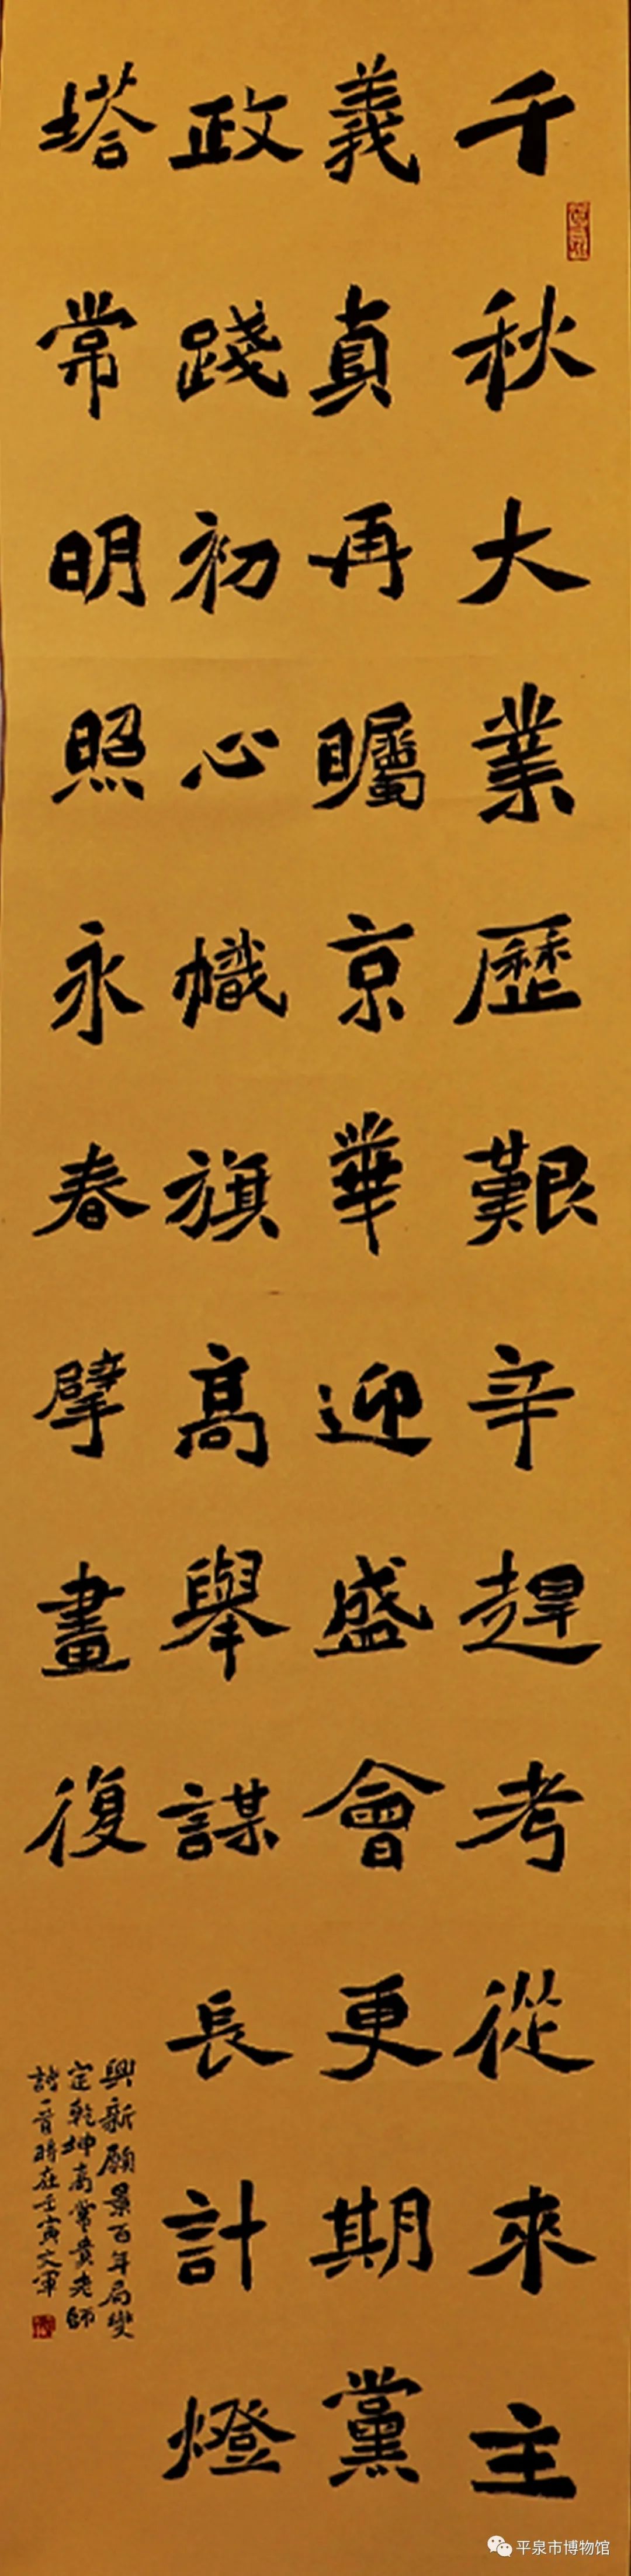 千秋大業歷艱辛趕考從來主
義真再矚京華迎盛會更期黨
政踐初心幟旗高舉謀長計燈
塔常明照永春擘畫復
興新願景百年局變
定乾坤高常貴老師
詩一首時在壬寅文軍
平泉市博物馆